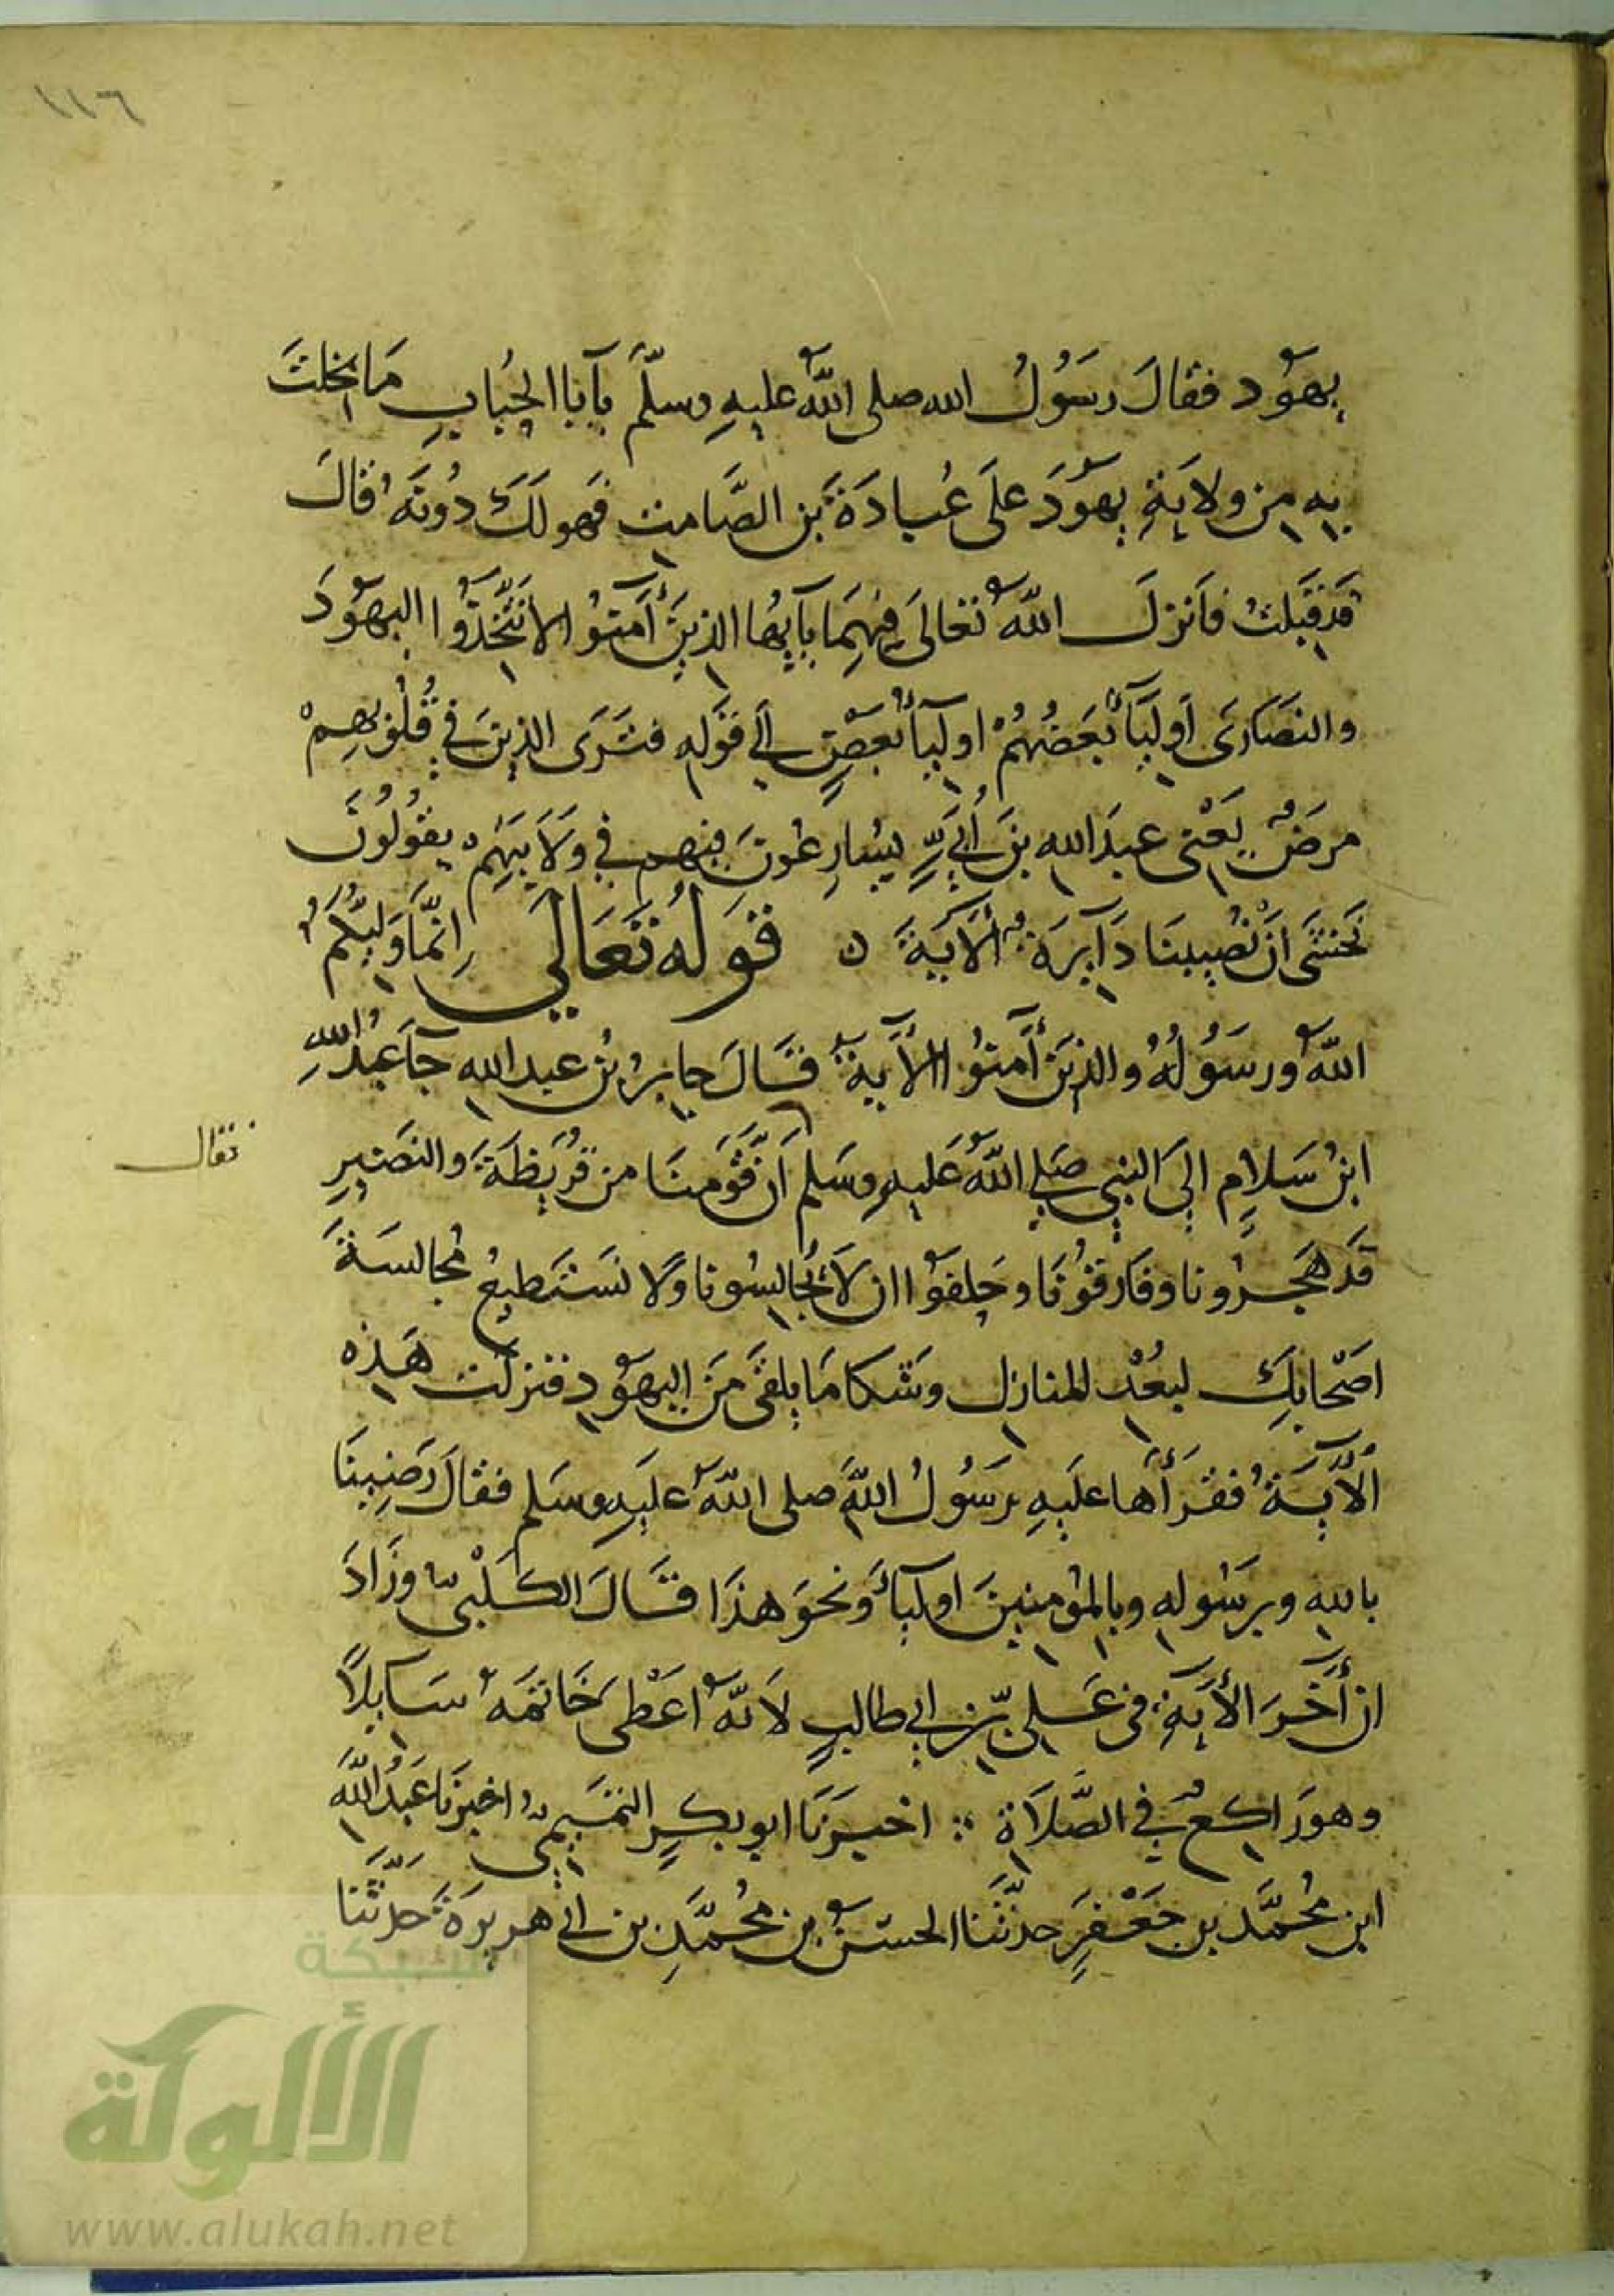 ١١٦
يهود فقالَ رسُولُ الله صلى اللهُ عليهِ وسلّم يآبا الحُبابِ مَا بخلتَ
بِه من ولايَةِ يهوَدَ علَى عُبادَةَ بن الصَّامت فهو لَكَ دُونَهُ قالَ
قَد قبَلتُ فاَنزلَ اللهُ تعالَى فيهِمَا يآيها الذينَ أمنوُا لا تتَّخذوُا اليهوُدَ
والنصَارَى أوليَآ بعَضُهُمْ اوليآ بعَضٍ الي قوَلِه فتَرَى الذينَ في قُلوُبهِمْ
مرضٌ يَعْنى عبدَ الله بنَ أبَيٍّ يسُارِعُونَ فيهم في ولَايَتِهِم يقوُلوُنَ
نَخشَى انْ تُصِيبنَا دَآيرَة الآيَةَ ٥ قوَلهُ تعَالَي اِنمَّا وَليُّكمُ
اللهُ ورسَوُلُهُ والذينَ أمنوُا الآيةَ قالَ جابرُ بنُ عبد الله جآ عبدُ اللهِ
ابنُ سَلامٍ الىَ النبي صَلي اللهُ عَليهِ وسَلم اَنّ قوَمنَا من قُريَظَةَ والنضَيرِ
فقال
قَد هَجَرُونا وفارَقوُنَا وحَلفوُا ان لاَ يُجالِسُونا ولا نسَتَطيعُ مُجالسَةَ
اصَحابِكَ لبعُدْ المنازل وشَكا مَا يلقىَ منَ اليهوُد فنزلت هَذه
الآيَةُ فقَرأَها علَيهِ رَسُولُ اللهَ صلى اللهُ علَيهِ وسَلم فقالَ رَضِينَا
بالله وبرسَوُله وبالموُمنينَ اوليآَ وَنحوَ هذَا قالَ الكَلْبىُ وزَادَ
ان أَخَرَ الأيَةِ فى عَلى بن ابي طالبٍ لاَنهُّ اعَطْى خَاتمهُ سَايِلاً
وهو رَاكعٌ في الصَّلاَة ؞ اخبرَنَا ابو بكرٍ التميَمِىُ اخبرَنا عَبدُ اللهَ
ابن مُحمَّد بن جَعْفرٍ حدثَّنا الحسَنُ بن مُحمَّدِ بن ابي هريرَةَ حَدثَّنا
شبكة
الألوكة
www.alukah.net